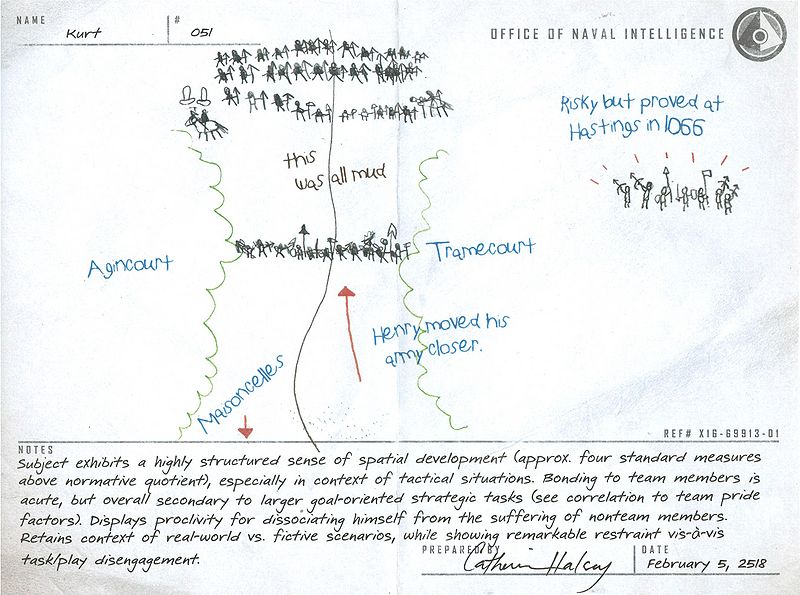 NAME
Kurt
#
051
OFFICE OF NAVAL INTELLIGENCE
Risky but proved at
Hastings in 1066
this
was all mud
Agincourt
Tramecourt
Henry moved his
army closer.
Maisoncelles
REF# X16-69913-01
NOTES
Subject exhibits a highly structured sense of spatial development (approx. four standard measures
above normative quotient), especially in context of tactical situations. Bonding to team members is
acute, but overall secondary to larger goal-oriented strategic tasks (see correlation to team pride
factors). Displays proclivity for dissociating himself from the suffering of nonteam members.
Retains context of real-world vs. fictive scenarios, while showing remarkable restraint vis-à-vis
task/play disengagement.
PREPARED BY
Catherine Halsey
DATE
February 5, 2518